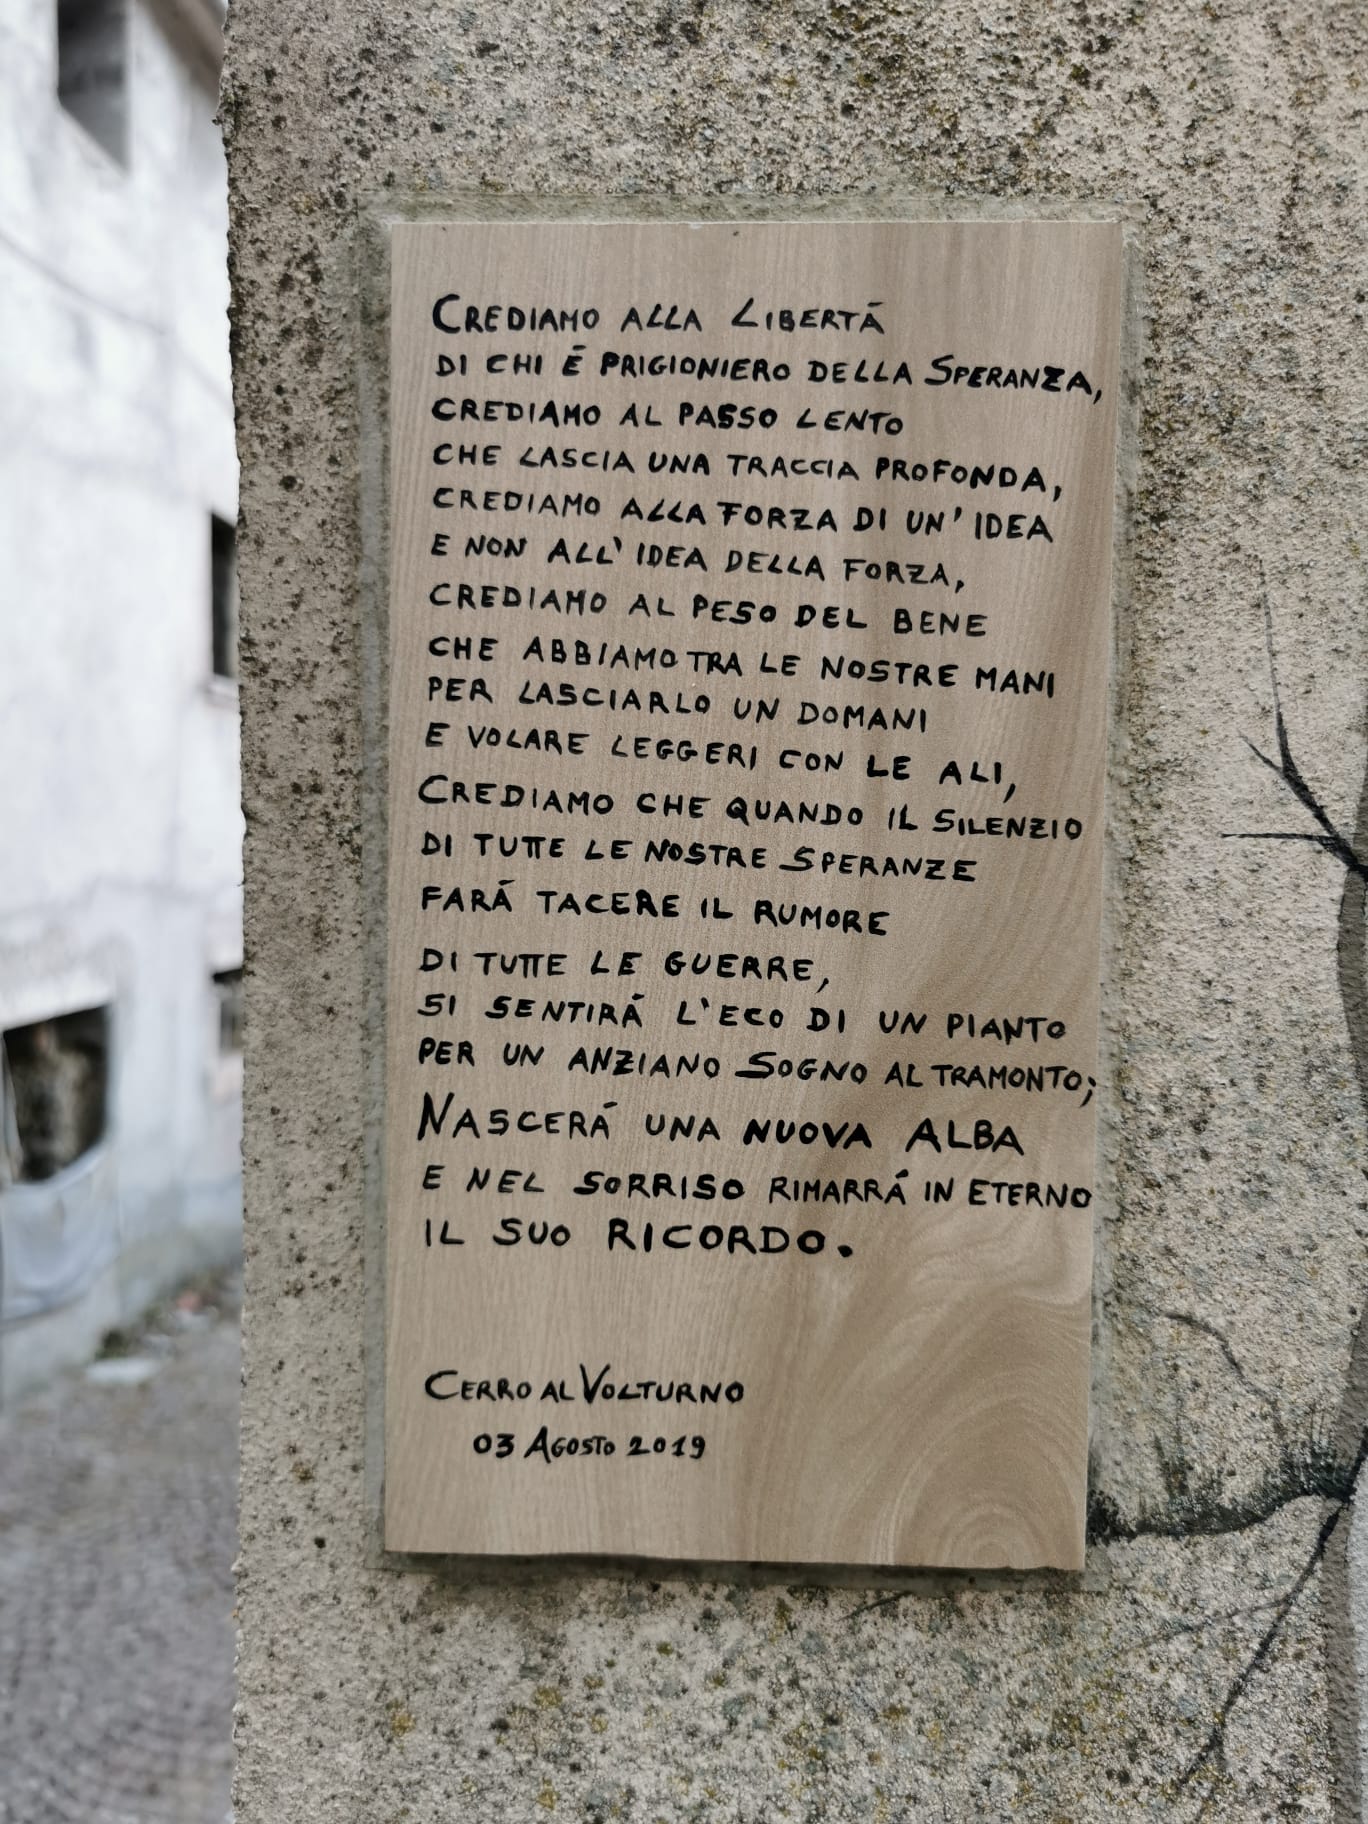 CREDIAMO ALLA LIBERTÁ
DI CHI É PRIGIONIERO DELLA SPERANZA,
CREDIAMO AL PASSO LENTO
CHE LASCIA UNA TRACCIA PROFONDA,
CREDIAMO ALLA FORZA DI UN'IDEA
E NON ALL'IDEA DELLA FORZA,
CREDIAMO AL PESO DEL BENE
CHE ABBIAMO TRA LE NOSTRE MANI
PER LASCIARLO UN DOMANI
E VOLARE LEGGERI CON LE ALI,
CREDIAMO CHE QUANDO IL SILENZIO
DI TUTTE LE NOSTRE SPERANZE
FARÁ TACERE IL RUMORE
DI TUTTE LE GUERRE,
SI SENTIRÁ L'ECO DI UN PIANTO
PER UN ANZIANO SOGNO AL TRAMONTO;
NASCERÁ UNA NUOVA ALBA
E NEL SORRISO RIMARRÁ IN ETERNO
IL SUO RICORDO.
CERRO AL VOLTURNO
03 AGOSTO 2019